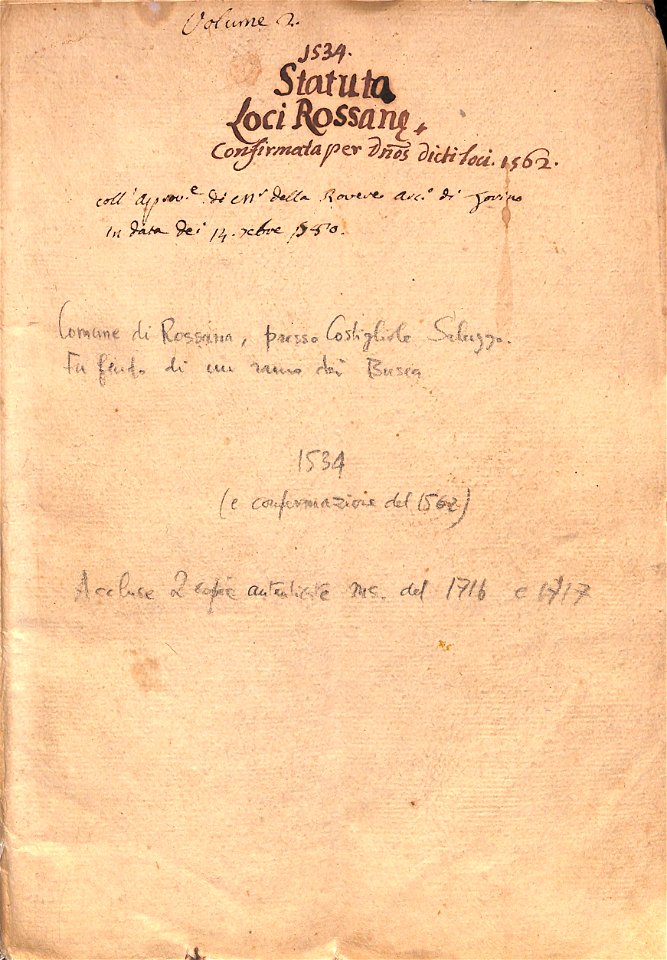 Volume 2.
1534.
Statuta
Loci Rossanę
Confirmata per Dños dicti loci. 1562.
coll' approv.e di Mr della Rovere Arc.o di Torino
in data dei 14. xbre 1550.
Comune di Rossana, presso Costigliole Saluzzo.
Fu feudo di un ramo dei Busca
1534
(e confirmazione del 1562)
Accluse 2 copie autenticate ms. del 1716 e 1717